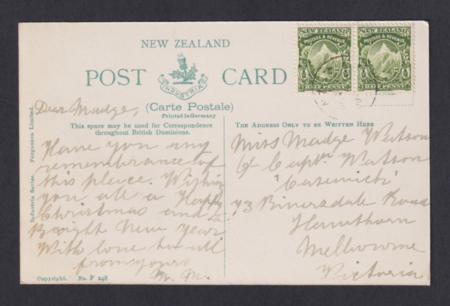 NEW ZEALAND
POST CARD
INDUSTRIA
(Carte Postale)
Printed in Germany
This space may be used for Correspondence
throughout British Dominions.
THE ADDRESS ONLY TO BE WRITTEN HERE
NEW ZEALAND
POSTAGE & REVENUE
NEW ZEALAND
POSTAGE & REVENUE
Fergusson Limited
Industria Series.
Dear Madge,
Have you any
remembrance of
this place. Wishing
you all a Happy
Christmas and a
Bright New Year
With love to all
from yours
M. M.
Copyright. No. F 248
Miss Madge Watson
C/o Captn Watson
73 Riversdale Road
Hawthorn
Melbourne
Victoria